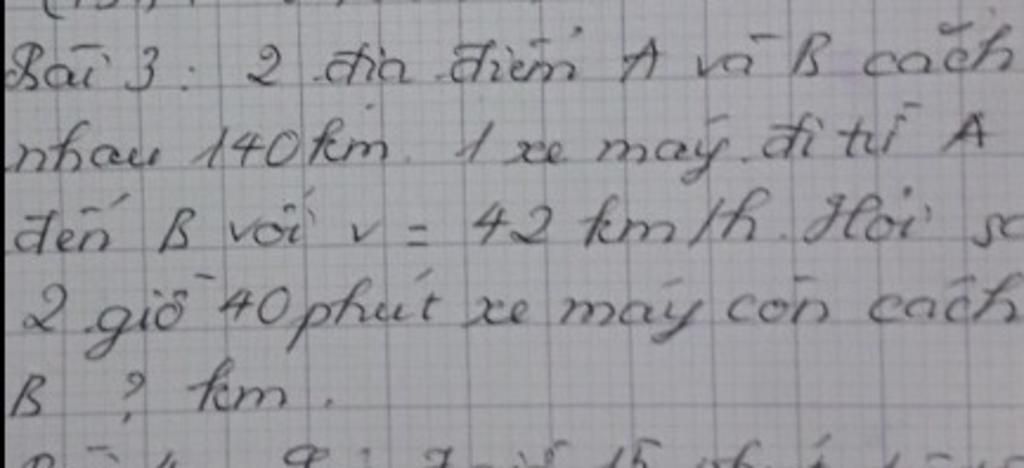 Bài 3: 2 địa điểm A và B cách
nhau 140 km. 1 xe máy đi từ A
đến B với v = 42 km/h. Hỏi
2 giờ 40 phút xe máy còn cách
B ? km.